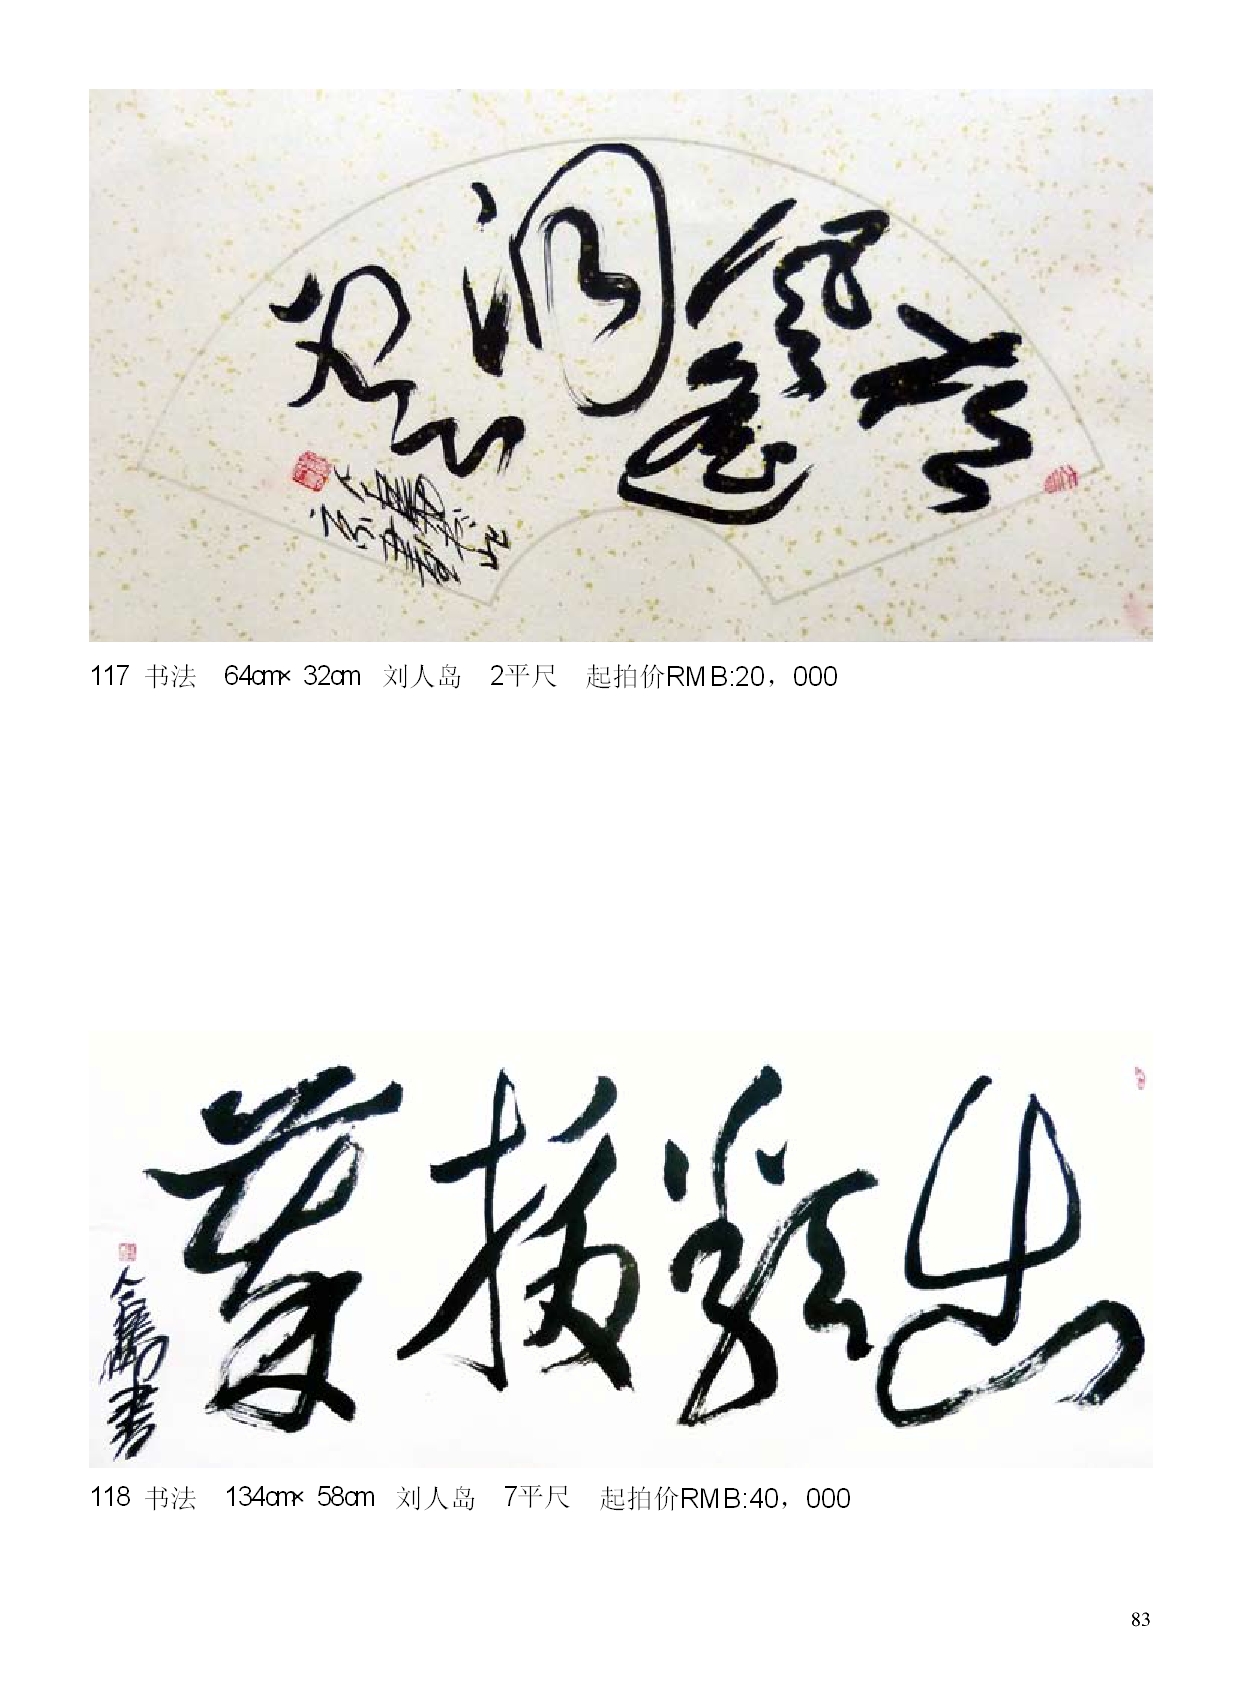 117 书法 64cm× 32cm 刘人岛 2平尺 起拍价RMB:20，000
出類拔萃
人島書
118 书法 134cm× 58cm 刘人岛 7平尺 起拍价RMB:40，000
83